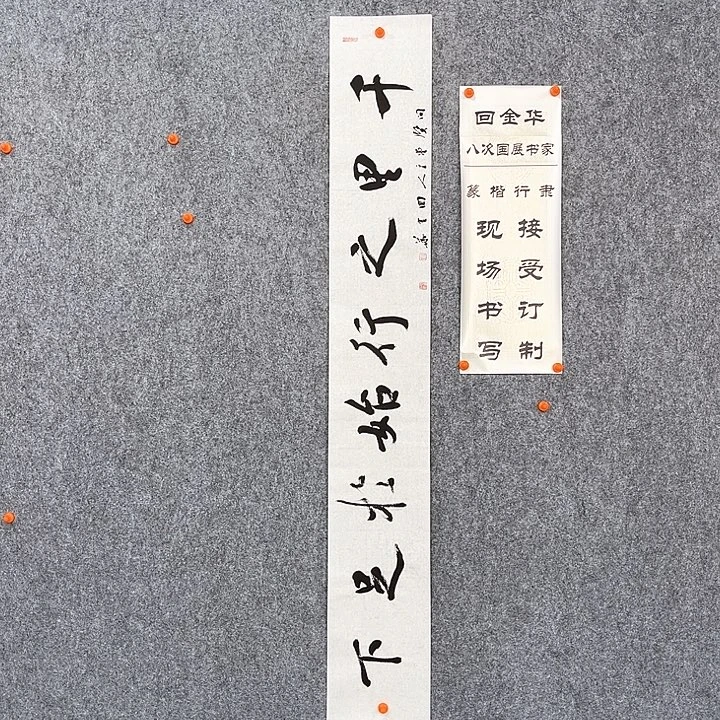 千里之行始於足下
回金华
八次国展书家
篆楷行隶
接受订制
现场书写